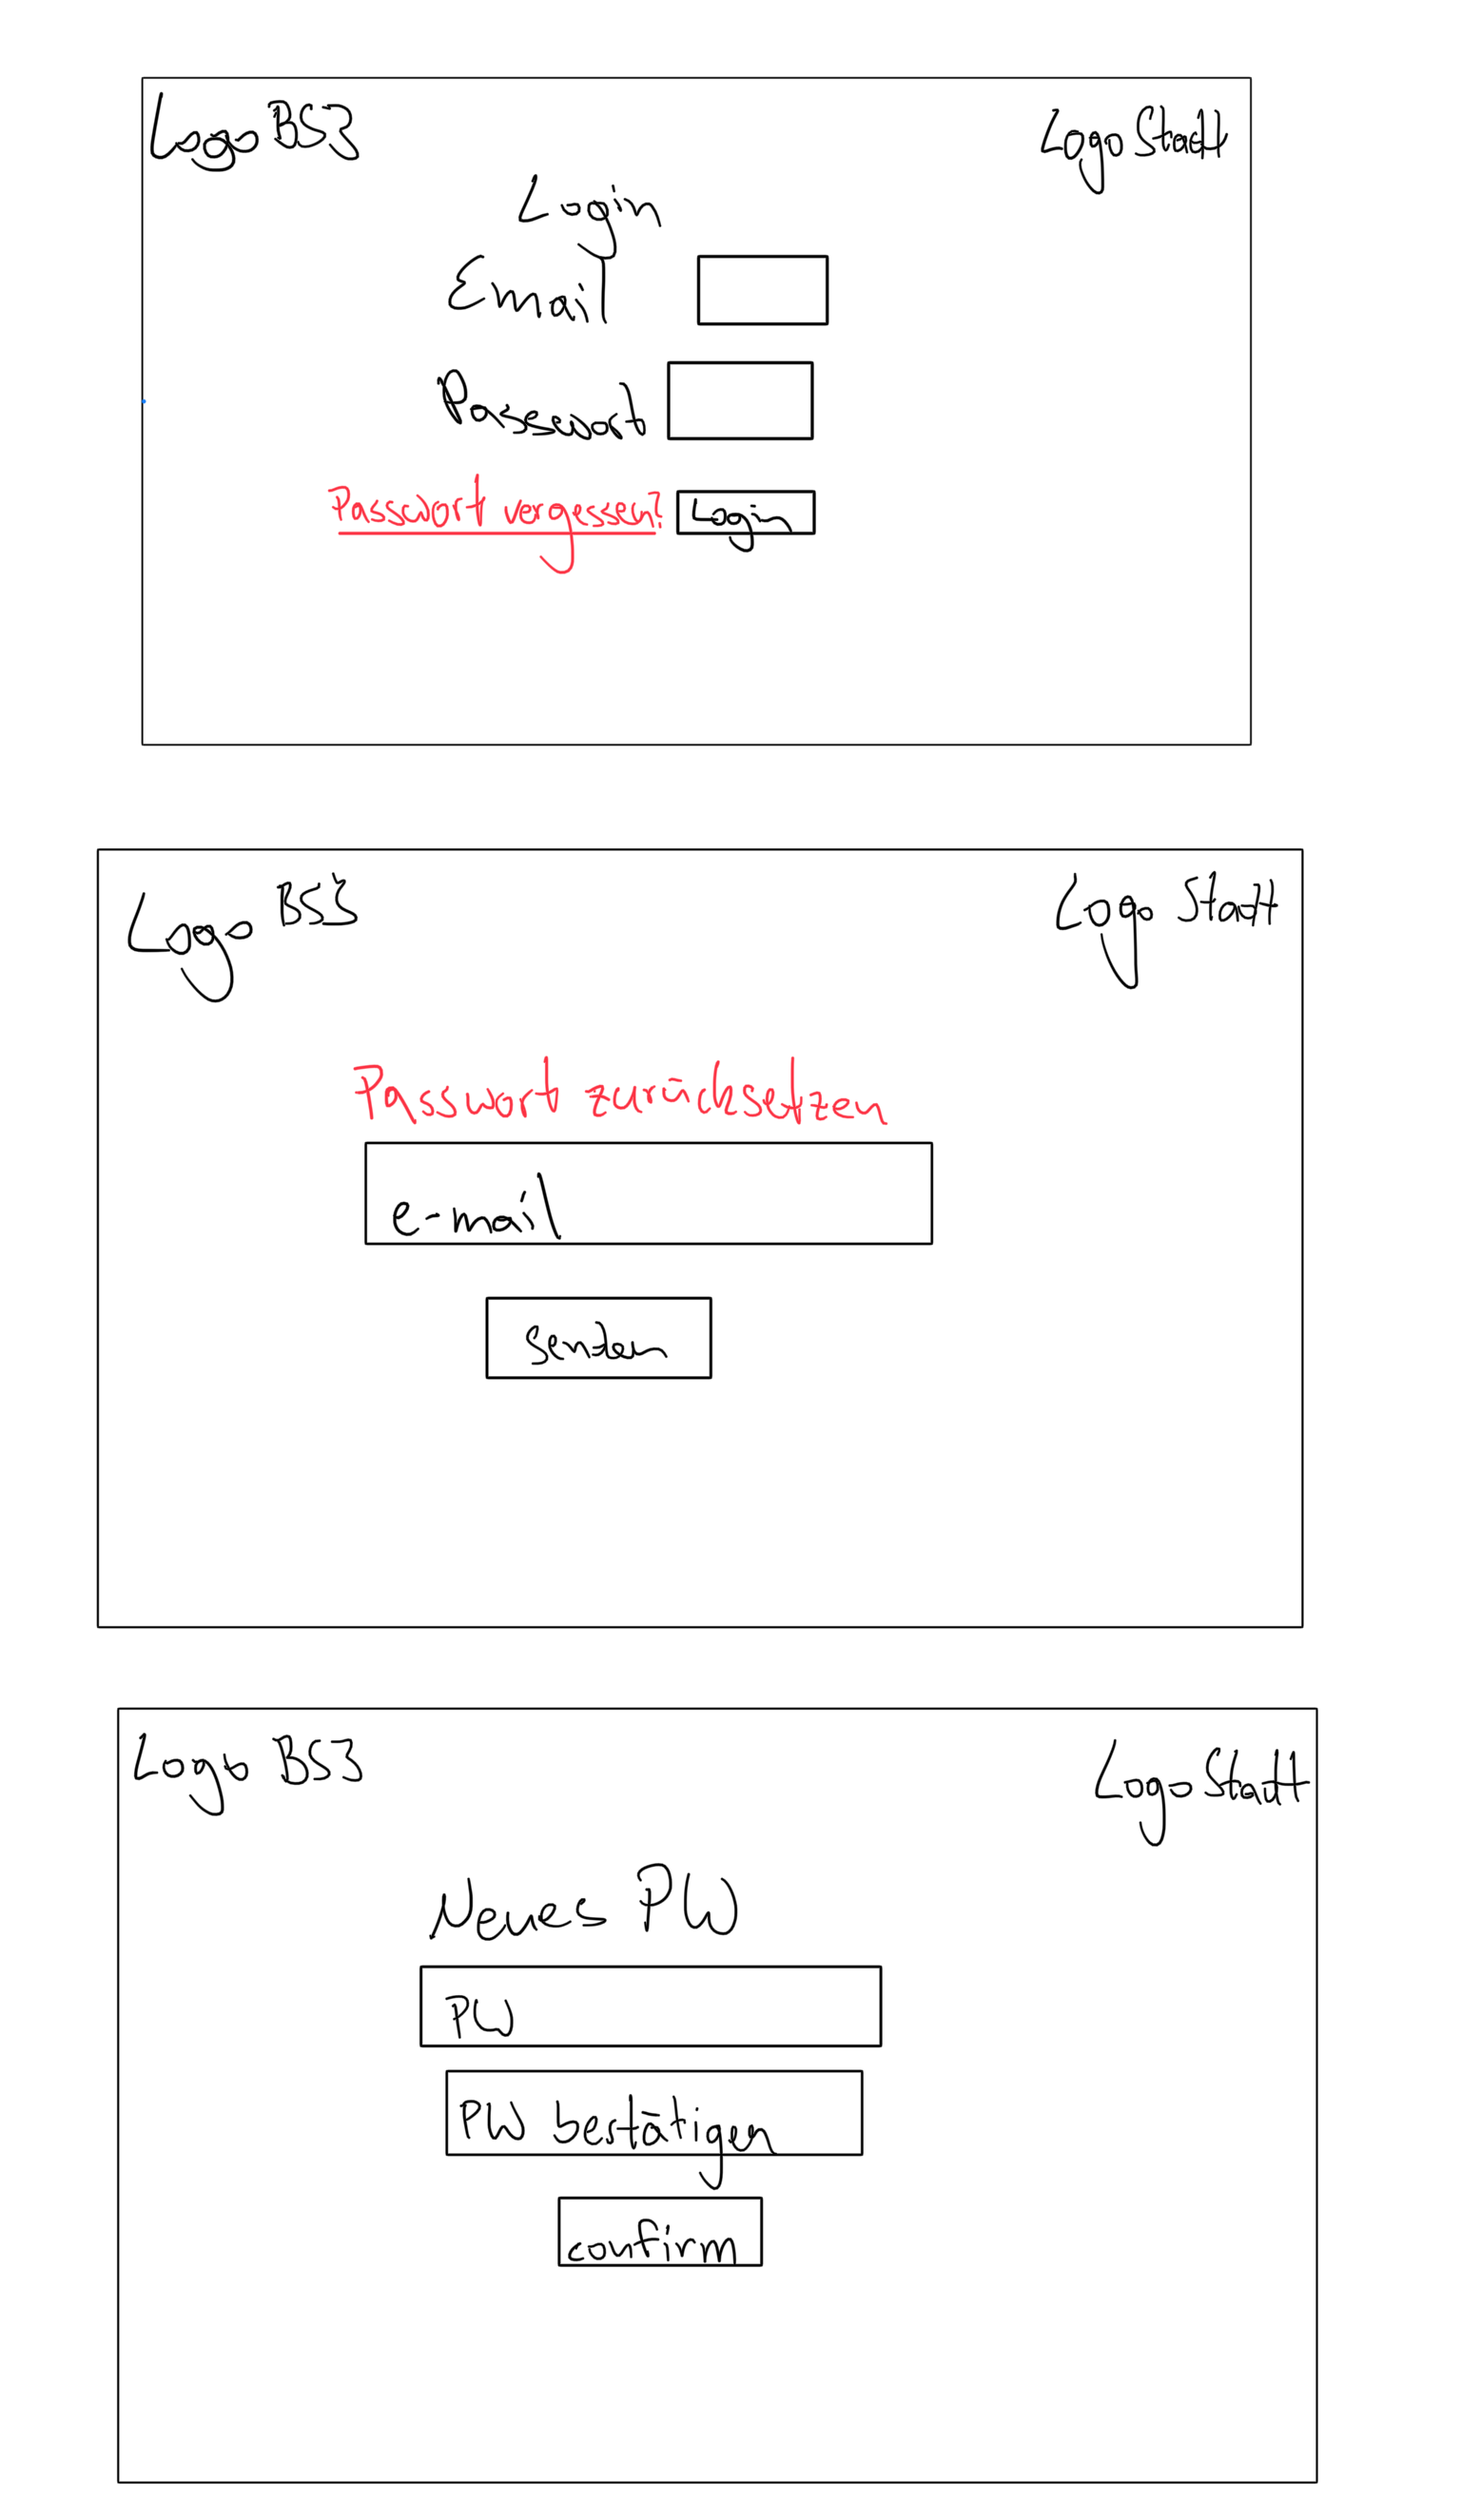 Logo BS3
Logo Stadt
Login
Email
Passwort
Passwort vergessen?
Login
Logo BS3
Logo Stadt
Passwort zurücksetzen
e-mail
Senden
Logo BS3
Logo Stadt
Neues PW
PW
PW bestätigen
confirm